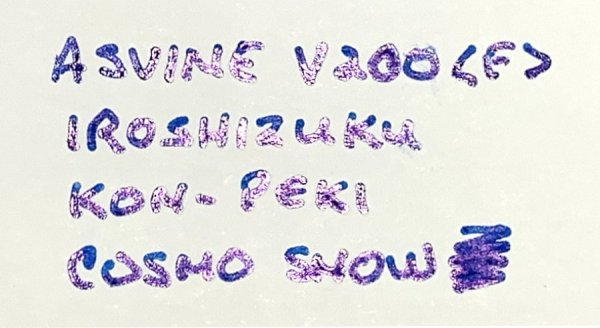 ASVINE V200 <F>
IROSHIZUKU
KON-PEKI
COSMO SNOW